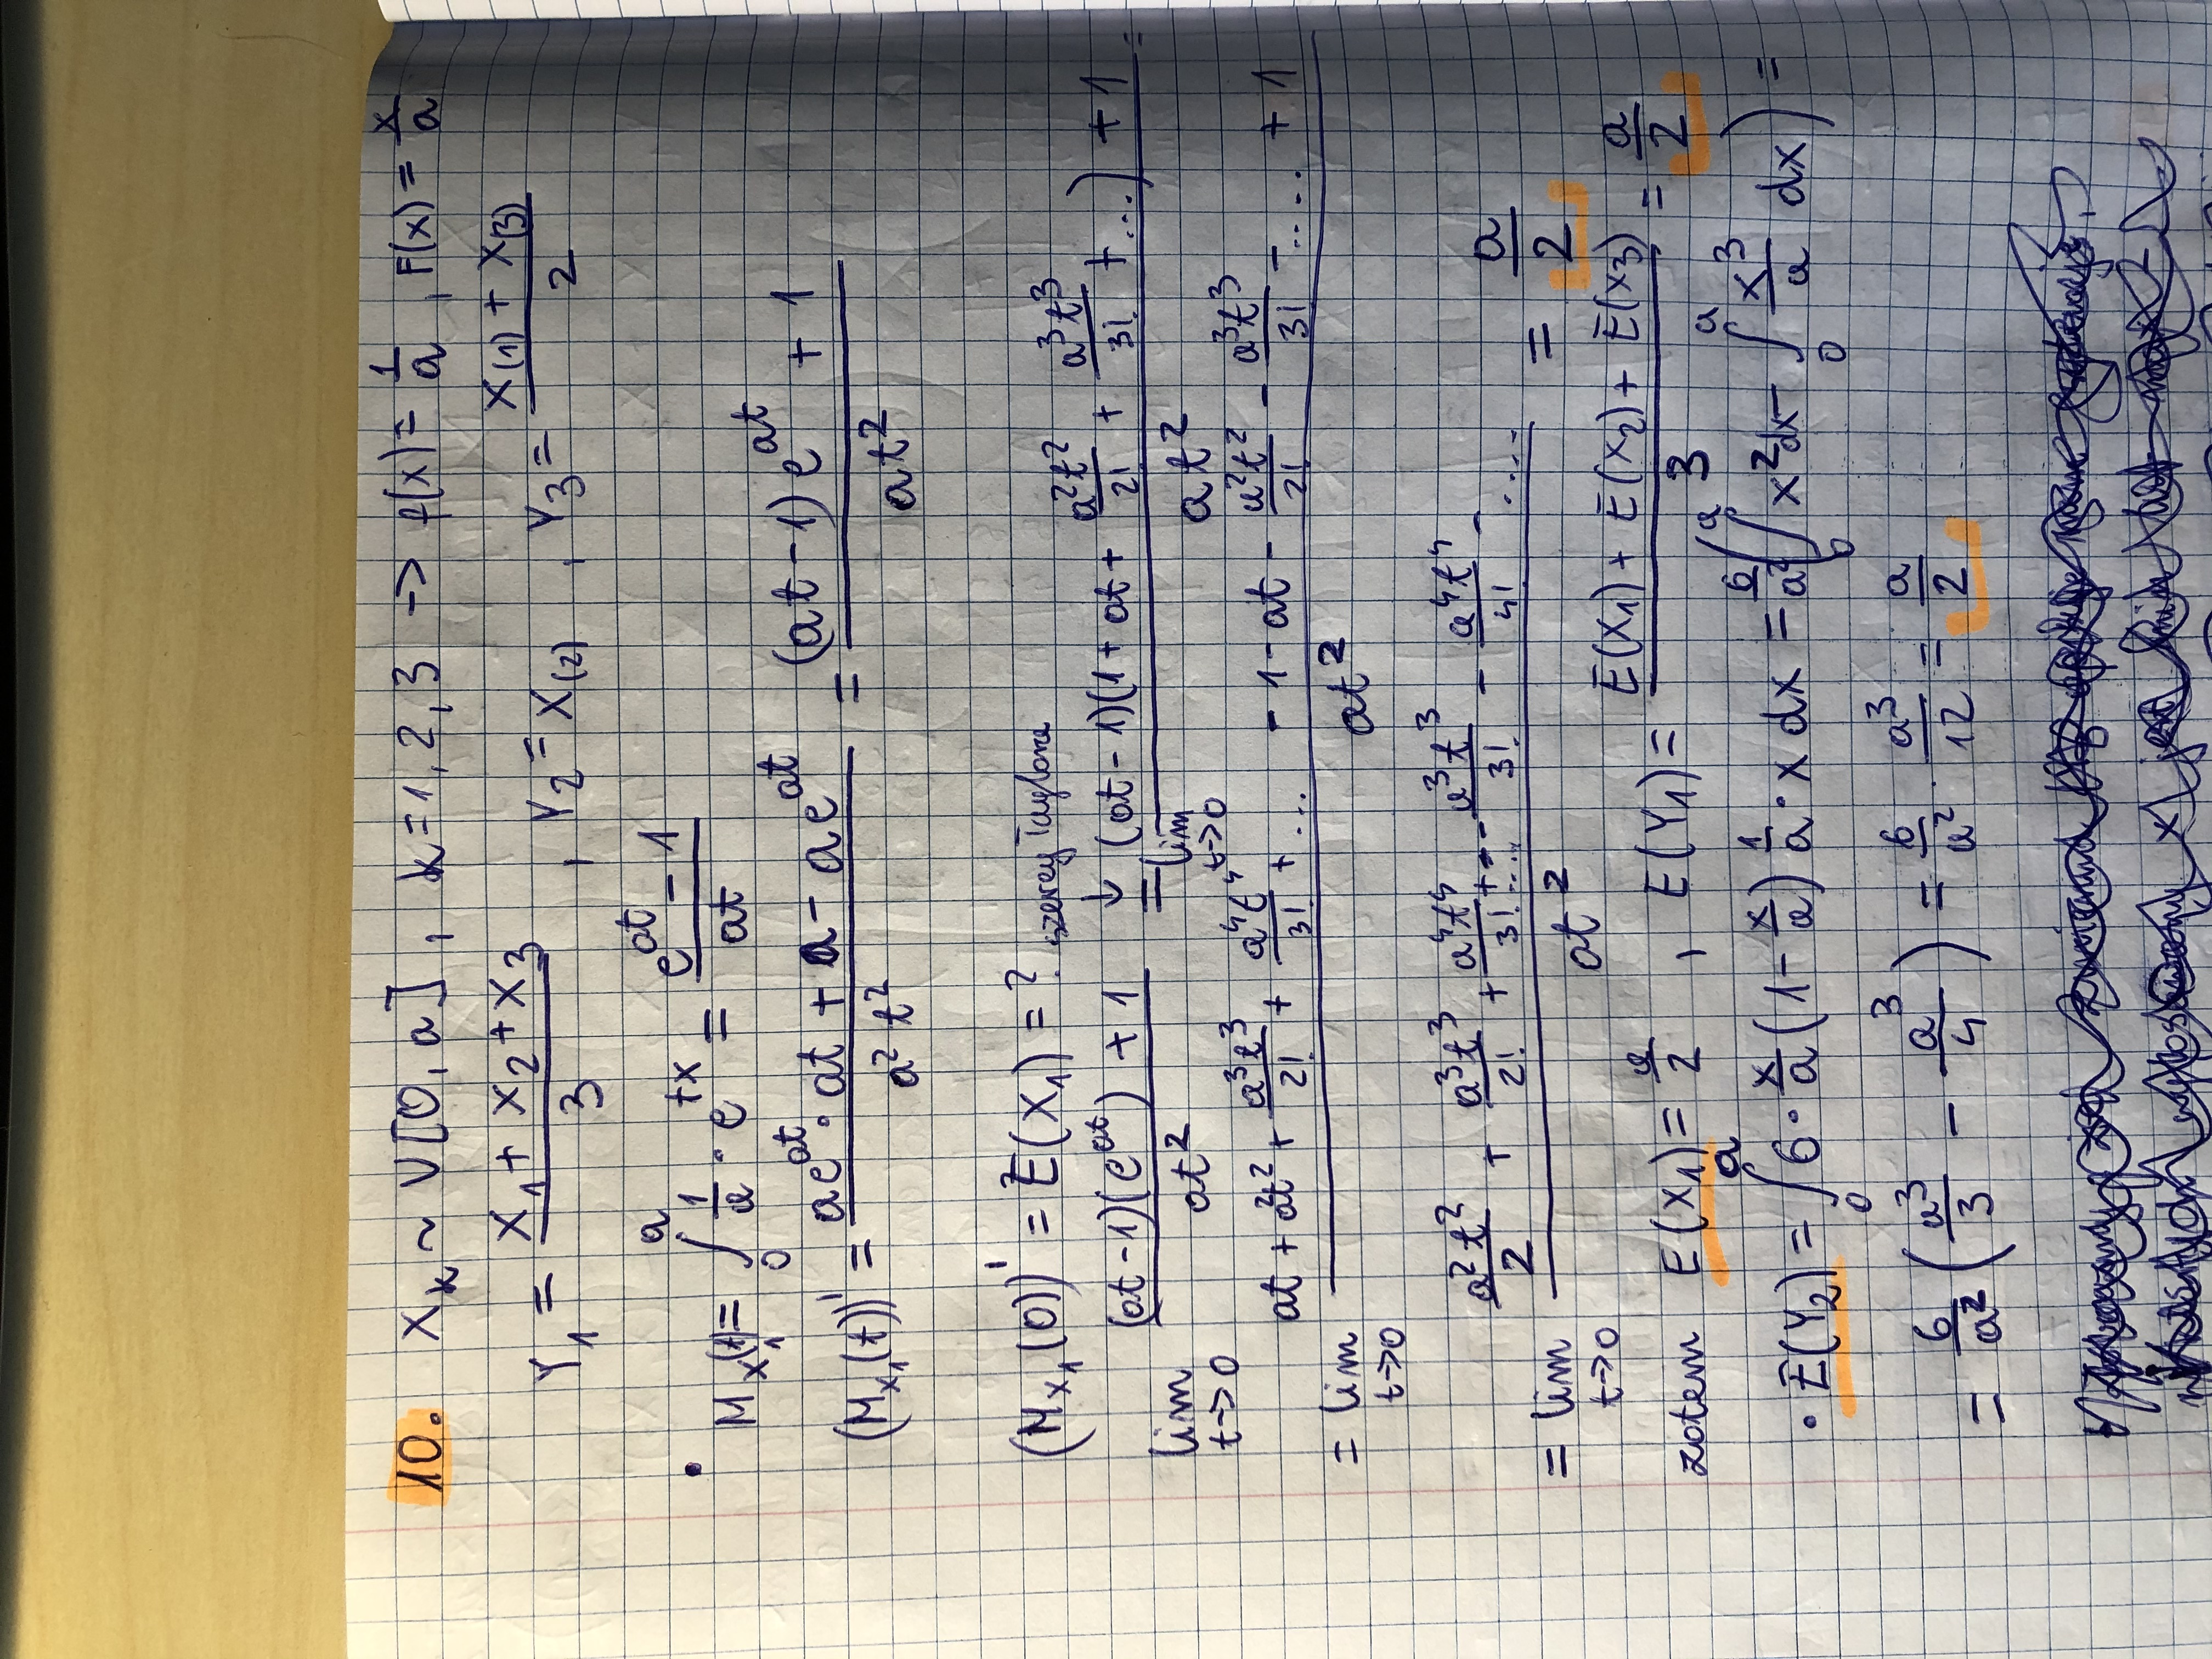 10. X_k ~ U[0, a], k = 1, 2, 3 -> f(x) = 1/a, F(x) = x/a
Y_1 = (X_1 + X_2 + X_3)/3, Y_2 = X_(2), Y_3 = (X_(1) + X_(3))/2
• M_{X_1}(t) = ∫_0^a 1/a · e^{tx} = (e^{at} - 1)/(at)
(M_{X_1}(t))' = (ae^{at} · at + a - ae^{at})/(a²t²) = ((at - 1)e^{at} + 1)/(at²)
(M_{X_1}(0))' = E(X_1) = ? szereg Taylora
lim_{t->0} ((at - 1)(e^{at}) + 1)/(at²) =↓ lim_{t->0} ((at - 1)(1 + at + a²t²/2! + a³t³/3! + ...) + 1)/(at²) =
= lim_{t->0} (at + a²t² + a³t³/2! + a⁴t⁴/3! + ... - 1 - at - a²t²/2! - a³t³/3! - .... + 1)/(at²)
= lim_{t->0} (a²t²/2 + a³t³/2! + a⁴t⁴/3! + ... - a³t³/3! - a⁴t⁴/4! - ....)/(at²) = a/2
zatem E(X_1) = a/2, E(Y_1) = (E(X_1) + E(X_2) + E(X_3))/3 = a/2
• E(Y_2) = ∫_0^a 6 · x/a (1 - x/a) 1/a · x dx = 6/a² (∫_0^a x² dx - ∫_0^a x³/a dx) =
= 6/a² (a³/3 - a³/4) = 6/a² · a³/12 = a/2